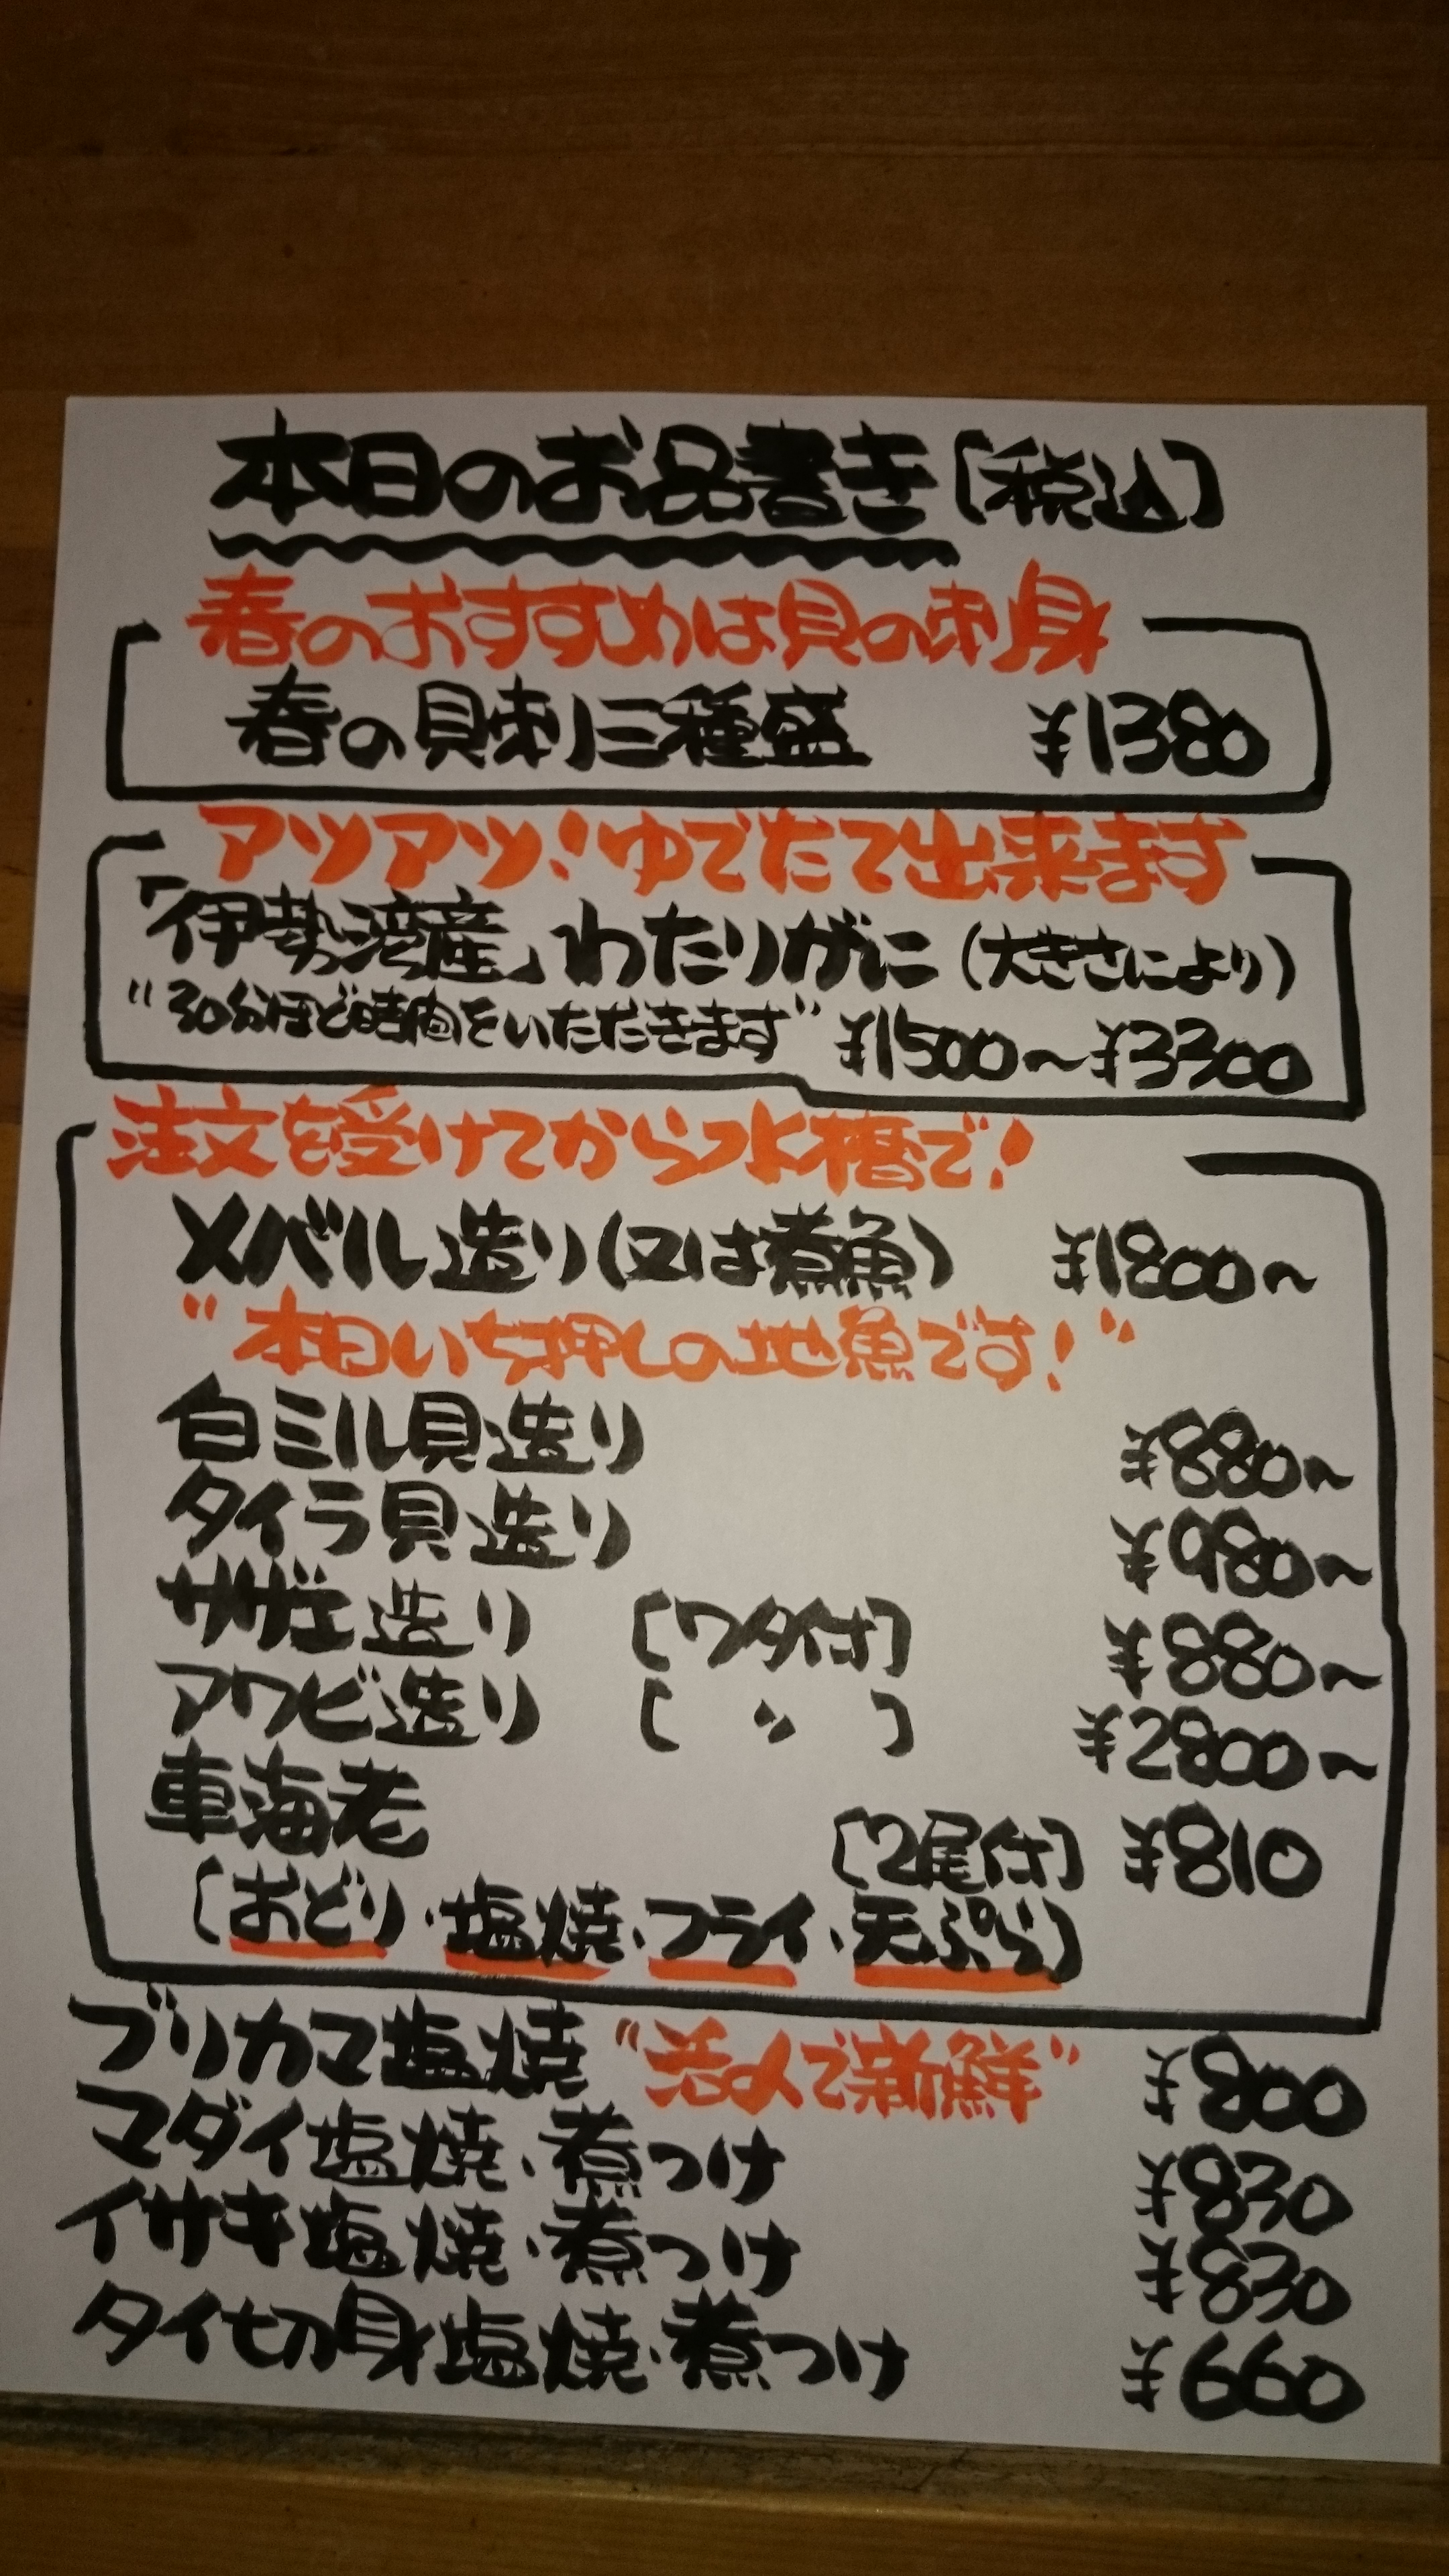 本日のお品書き〔税込〕
春のおすすめは貝の刺身
春の貝刺三種盛 ¥1380
アツアツ!ゆでたて出来ます
「伊勢湾産」わたりがに(大きさにより)
"30分ほど時間をいただきます" ¥1500~¥3300
注文を受けてから水槽で!
メバル造り(又は煮魚) ¥1800~
"本日いち押しの地魚です!"
白ミル貝造り ¥880~
タイラ貝造り ¥980~
サザエ造り 〔ワタ付〕 ¥880~
アワビ造り 〔 〃 〕 ¥2800~
車海老 〔2尾付〕 ¥810
〔おどり・塩焼・フライ・天ぷら〕
ブリカマ塩焼 "活〆で新鮮" ¥800
マダイ塩焼・煮つけ ¥830
イサキ塩焼・煮つけ ¥830
タイ切身塩焼・煮つけ ¥660